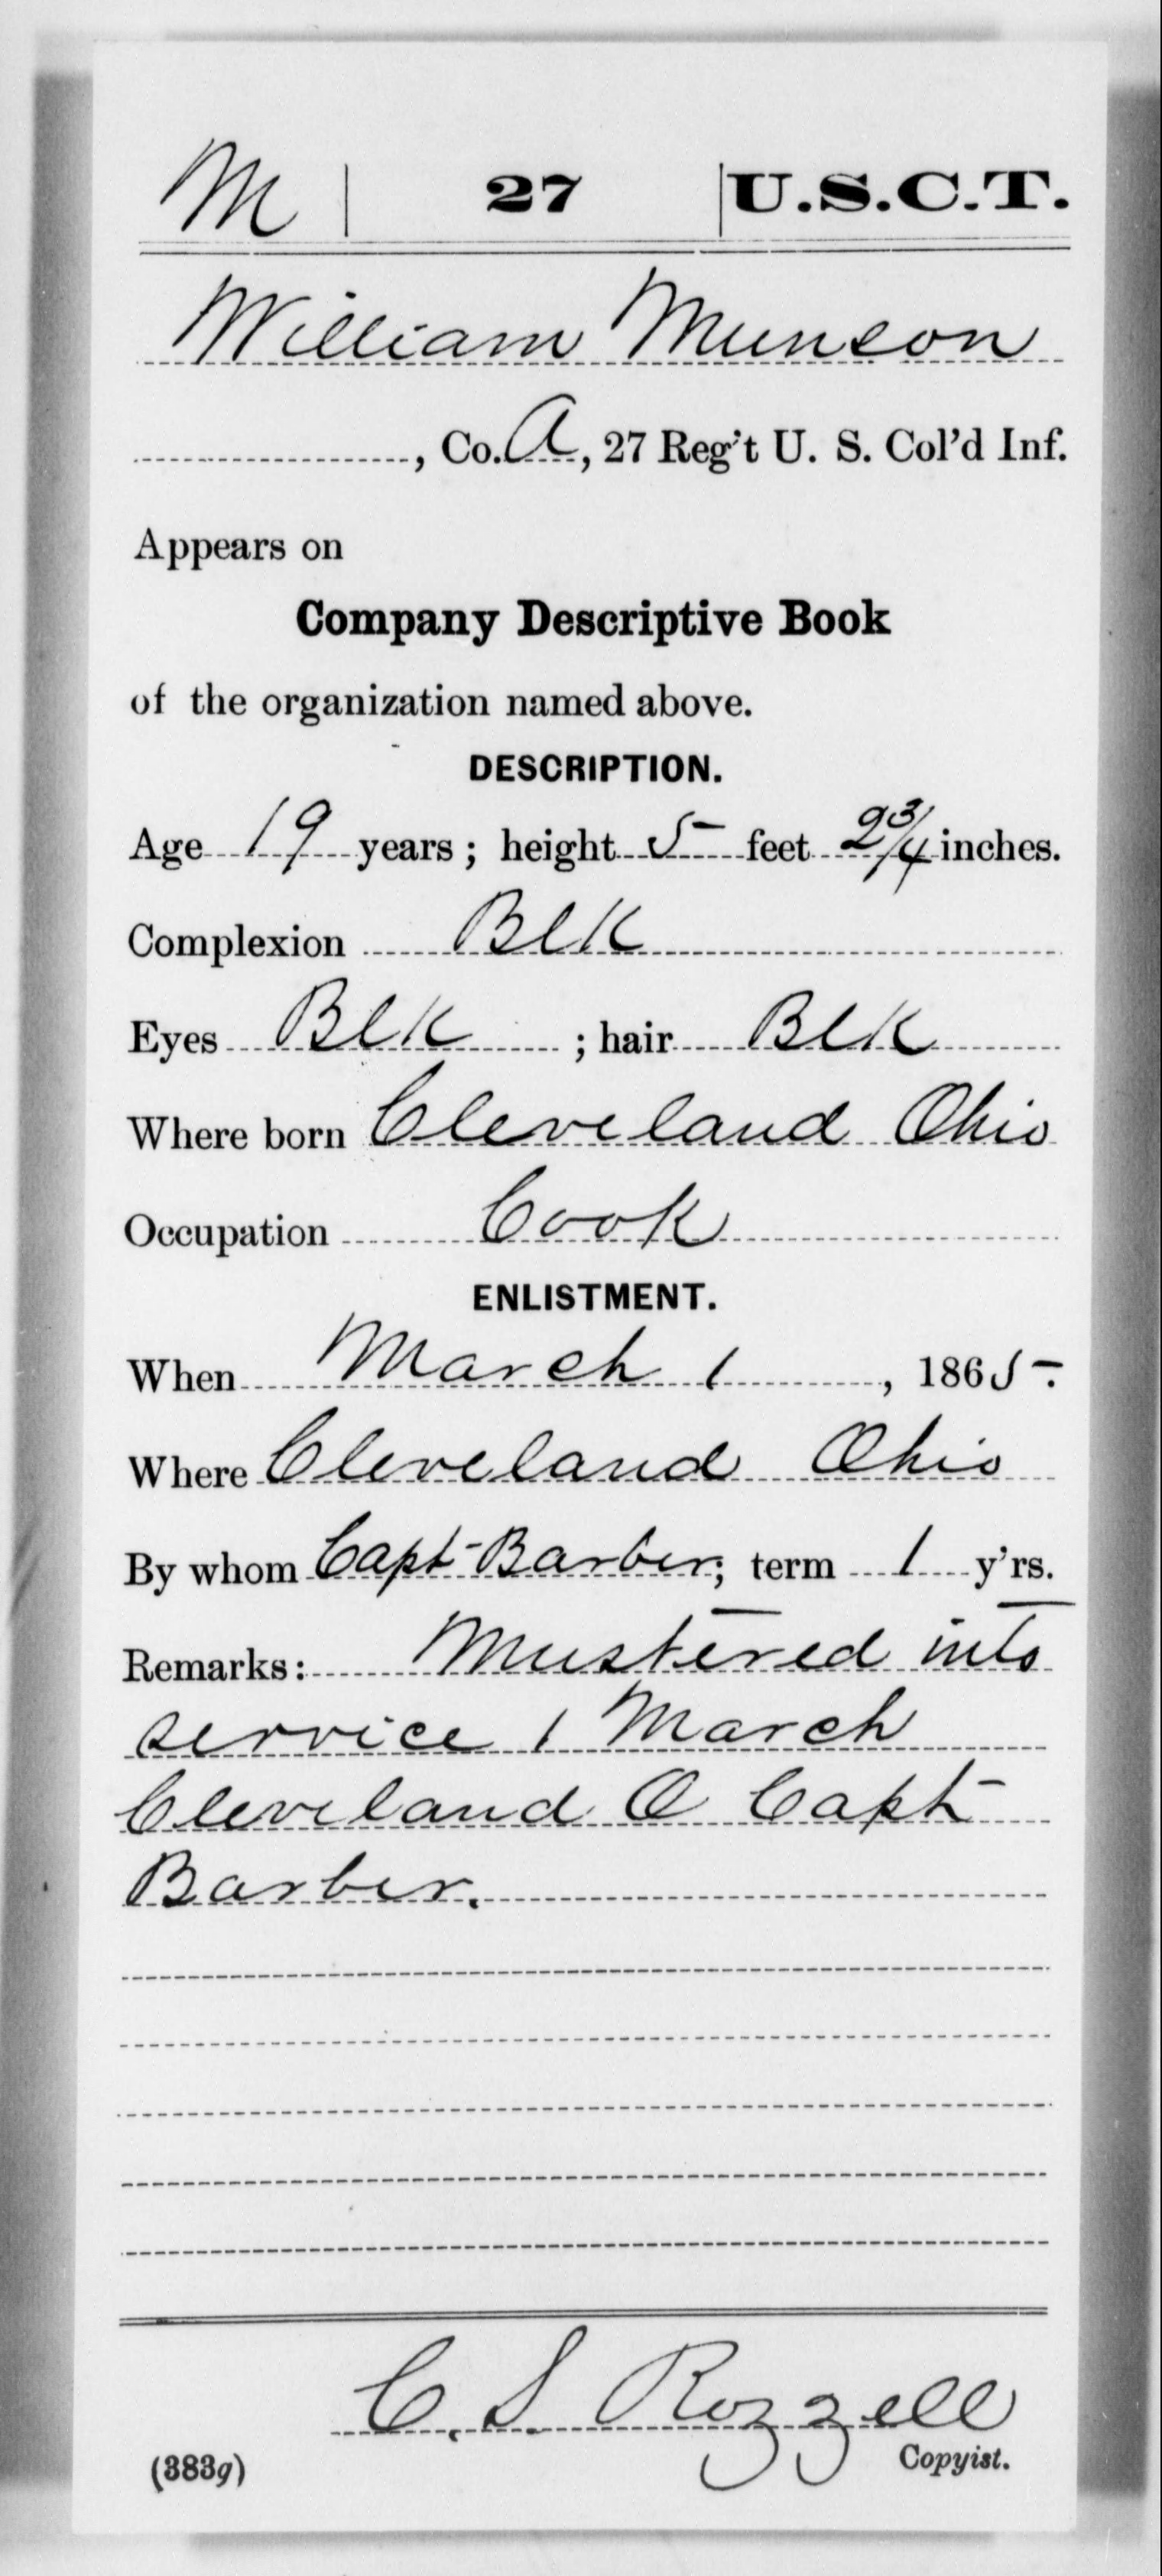 M 27 U.S.C.T.
William Munson
, Co. A, 27 Reg't U. S. Col'd Inf.
Appears on
Company Descriptive Book
of the organization named above.
DESCRIPTION.
Age 19 years; height 5 feet 2 3/4 inches.
Complexion Blk
Eyes Blk ; hair Blk
Where born Cleveland Ohio
Occupation Cook
ENLISTMENT.
When March 1, 1865.
Where Cleveland Ohio
By whom Capt Barber; term 1 y'rs.
Remarks: Mustered into
service 1 March
Cleveland O Capt
Barber.
C. S. Rozzell
Copyist.
(383g)